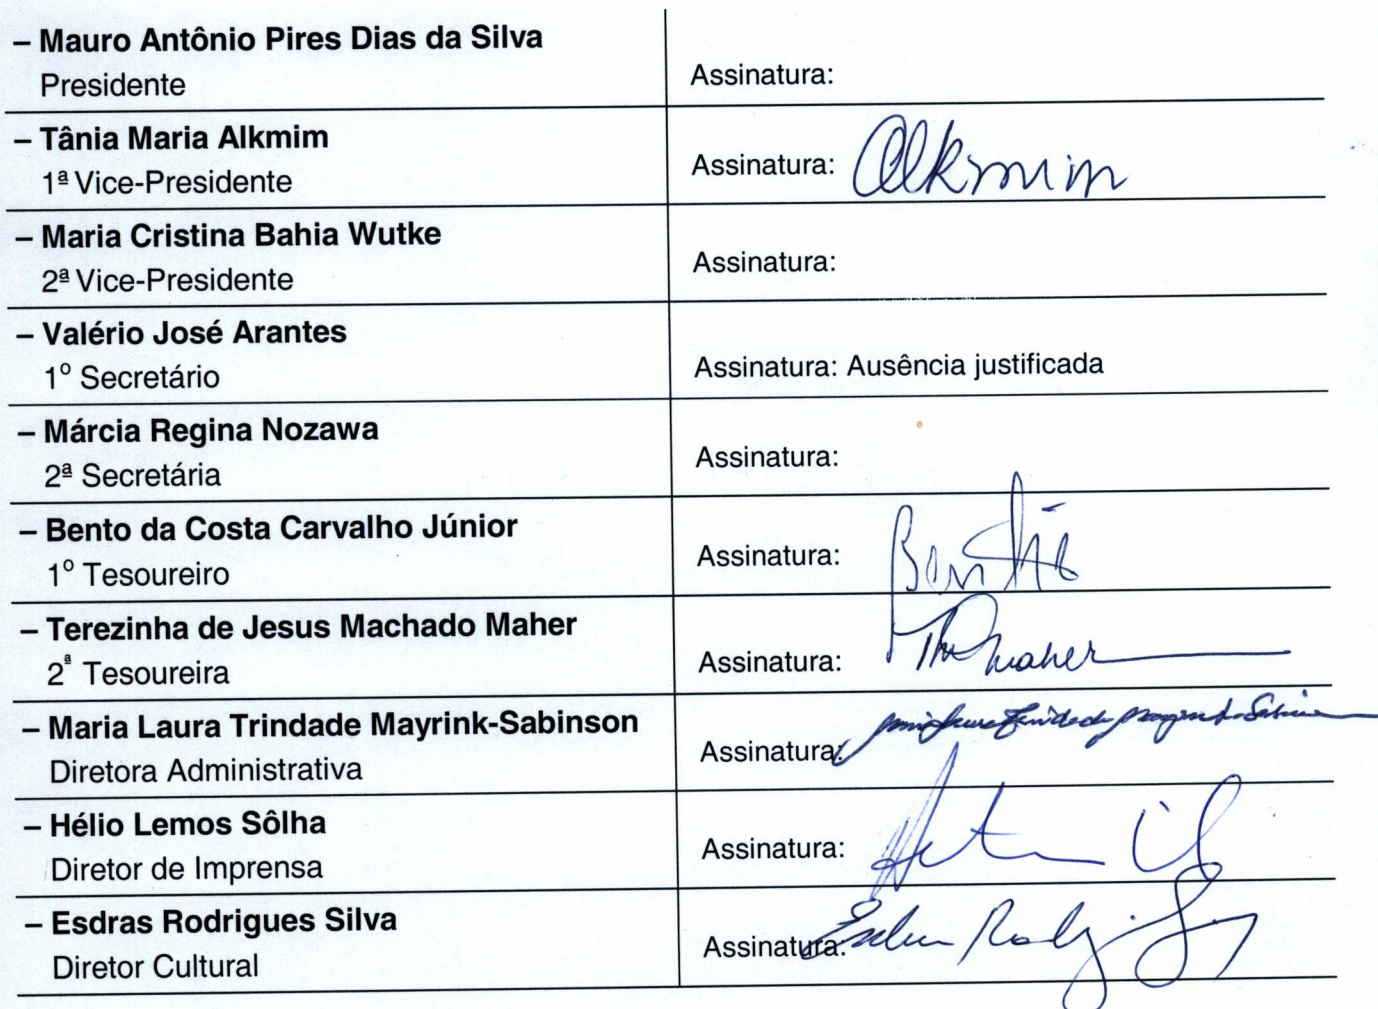 – Mauro Antônio Pires Dias da Silva
Presidente
Assinatura:
– Tânia Maria Alkmim
1ª Vice-Presidente
Assinatura: Alkmim
– Maria Cristina Bahia Wutke
2ª Vice-Presidente
Assinatura:
– Valério José Arantes
1º Secretário
Assinatura: Ausência justificada
– Márcia Regina Nozawa
2ª Secretária
Assinatura:
– Bento da Costa Carvalho Júnior
1º Tesoureiro
Assinatura:
– Terezinha de Jesus Machado Maher
2ª Tesoureira
Assinatura: Maher
– Maria Laura Trindade Mayrink-Sabinson
Diretora Administrativa
Assinatura:
– Hélio Lemos Sôlha
Diretor de Imprensa
Assinatura:
– Esdras Rodrigues Silva
Diretor Cultural
Assinatura: